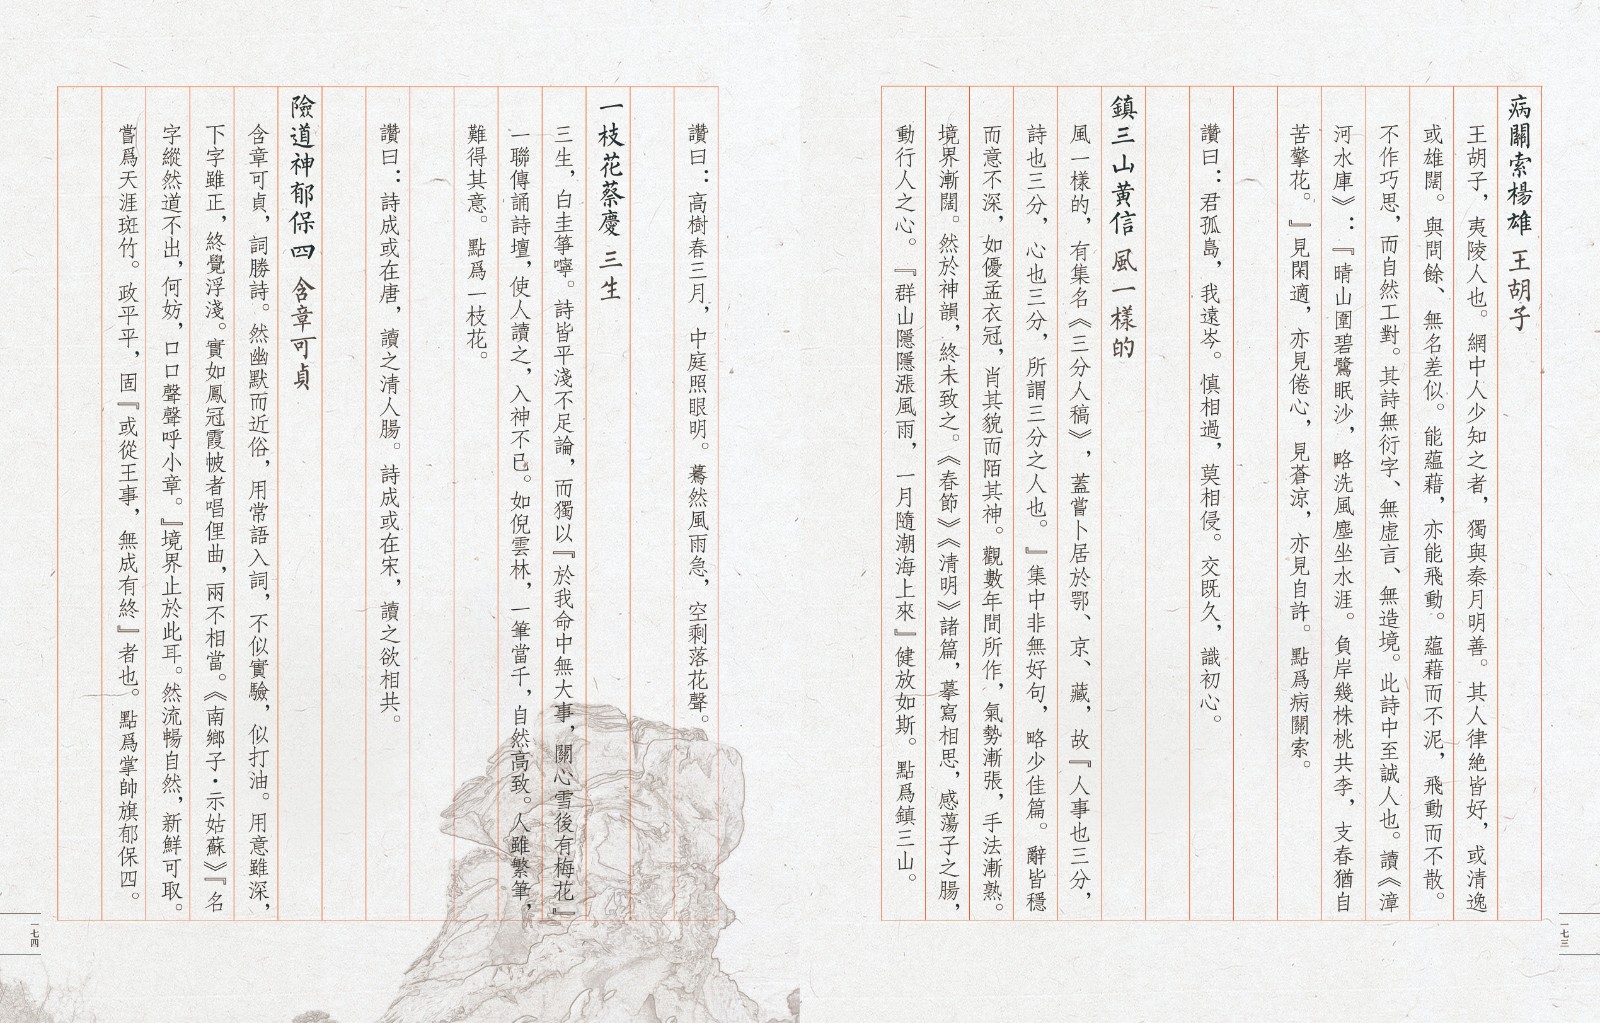 病關索楊雄 王胡子
王胡子，夷陵人也。網中人少知之者，獨與秦月明善。其人律絶皆好，或清逸
或雄闊。與問餘、無名差似。能蘊藉，亦能飛動。蘊藉而不泥，飛動而不散。
不作巧思，而自然工對。其詩無衍字、無虛言、無造境。此詩中至誠人也。讀《漳
河水庫》：『晴山圍碧鷺眠沙，略洗風塵坐水涯。負岸幾株桃共李，支春猶自
苦擎花。』見閑適，亦見倦心，見蒼涼，亦見自許。點爲病關索。
讚曰：君孤島，我遠岑。慎相過，莫相侵。交既久，識初心。
鎮三山黃信 風一樣的
風一樣的，有集名《三分人稿》，蓋嘗卜居於鄂、京、藏，故『人事也三分，
詩也三分，心也三分，所謂三分之人也。』集中非無好句，略少佳篇。辭皆穩
而意不深，如優孟衣冠，肖其貌而陌其神。觀數年間所作，氣勢漸張，手法漸熟。
境界漸闊。然於神韻，終未致之。《春節》《清明》諸篇，摹寫相思，感蕩子之腸，
動行人之心。『群山隱隱漲風雨，一月隨潮海上來』健放如斯。點爲鎮三山。
一七三
讚曰：高樹春三月，中庭照眼明。驀然風雨急，空剩落花聲。
一枝花蔡慶 三生
三生，白圭箏嚀。詩皆平淺不足論，而獨以『於我命中無大事，關心雪後有梅花』
一聯傳誦詩壇，使人讀之，入神不已。如倪雲林，一筆當千，自然高致。人雖繁筆，
難得其意。點爲一枝花。
讚曰：詩成或在唐，讀之清人腸。詩成或在宋，讀之欲相共。
險道神郁保四 含章可貞
含章可貞，詞勝詩。然幽默而近俗，用常語入詞，不似實驗，似打油。用意雖深，
下字雖正，終覺浮淺。實如鳳冠霞帔者唱俚曲，兩不相當。《南鄉子·示姑蘇》『名
字縱然道不出，何妨，口口聲聲呼小章。』境界止於此耳。然流暢自然，新鮮可取。
嘗爲天涯斑竹。政平平，固『或從王事，無成有終』者也。點爲掌帥旗郁保四。
一七四